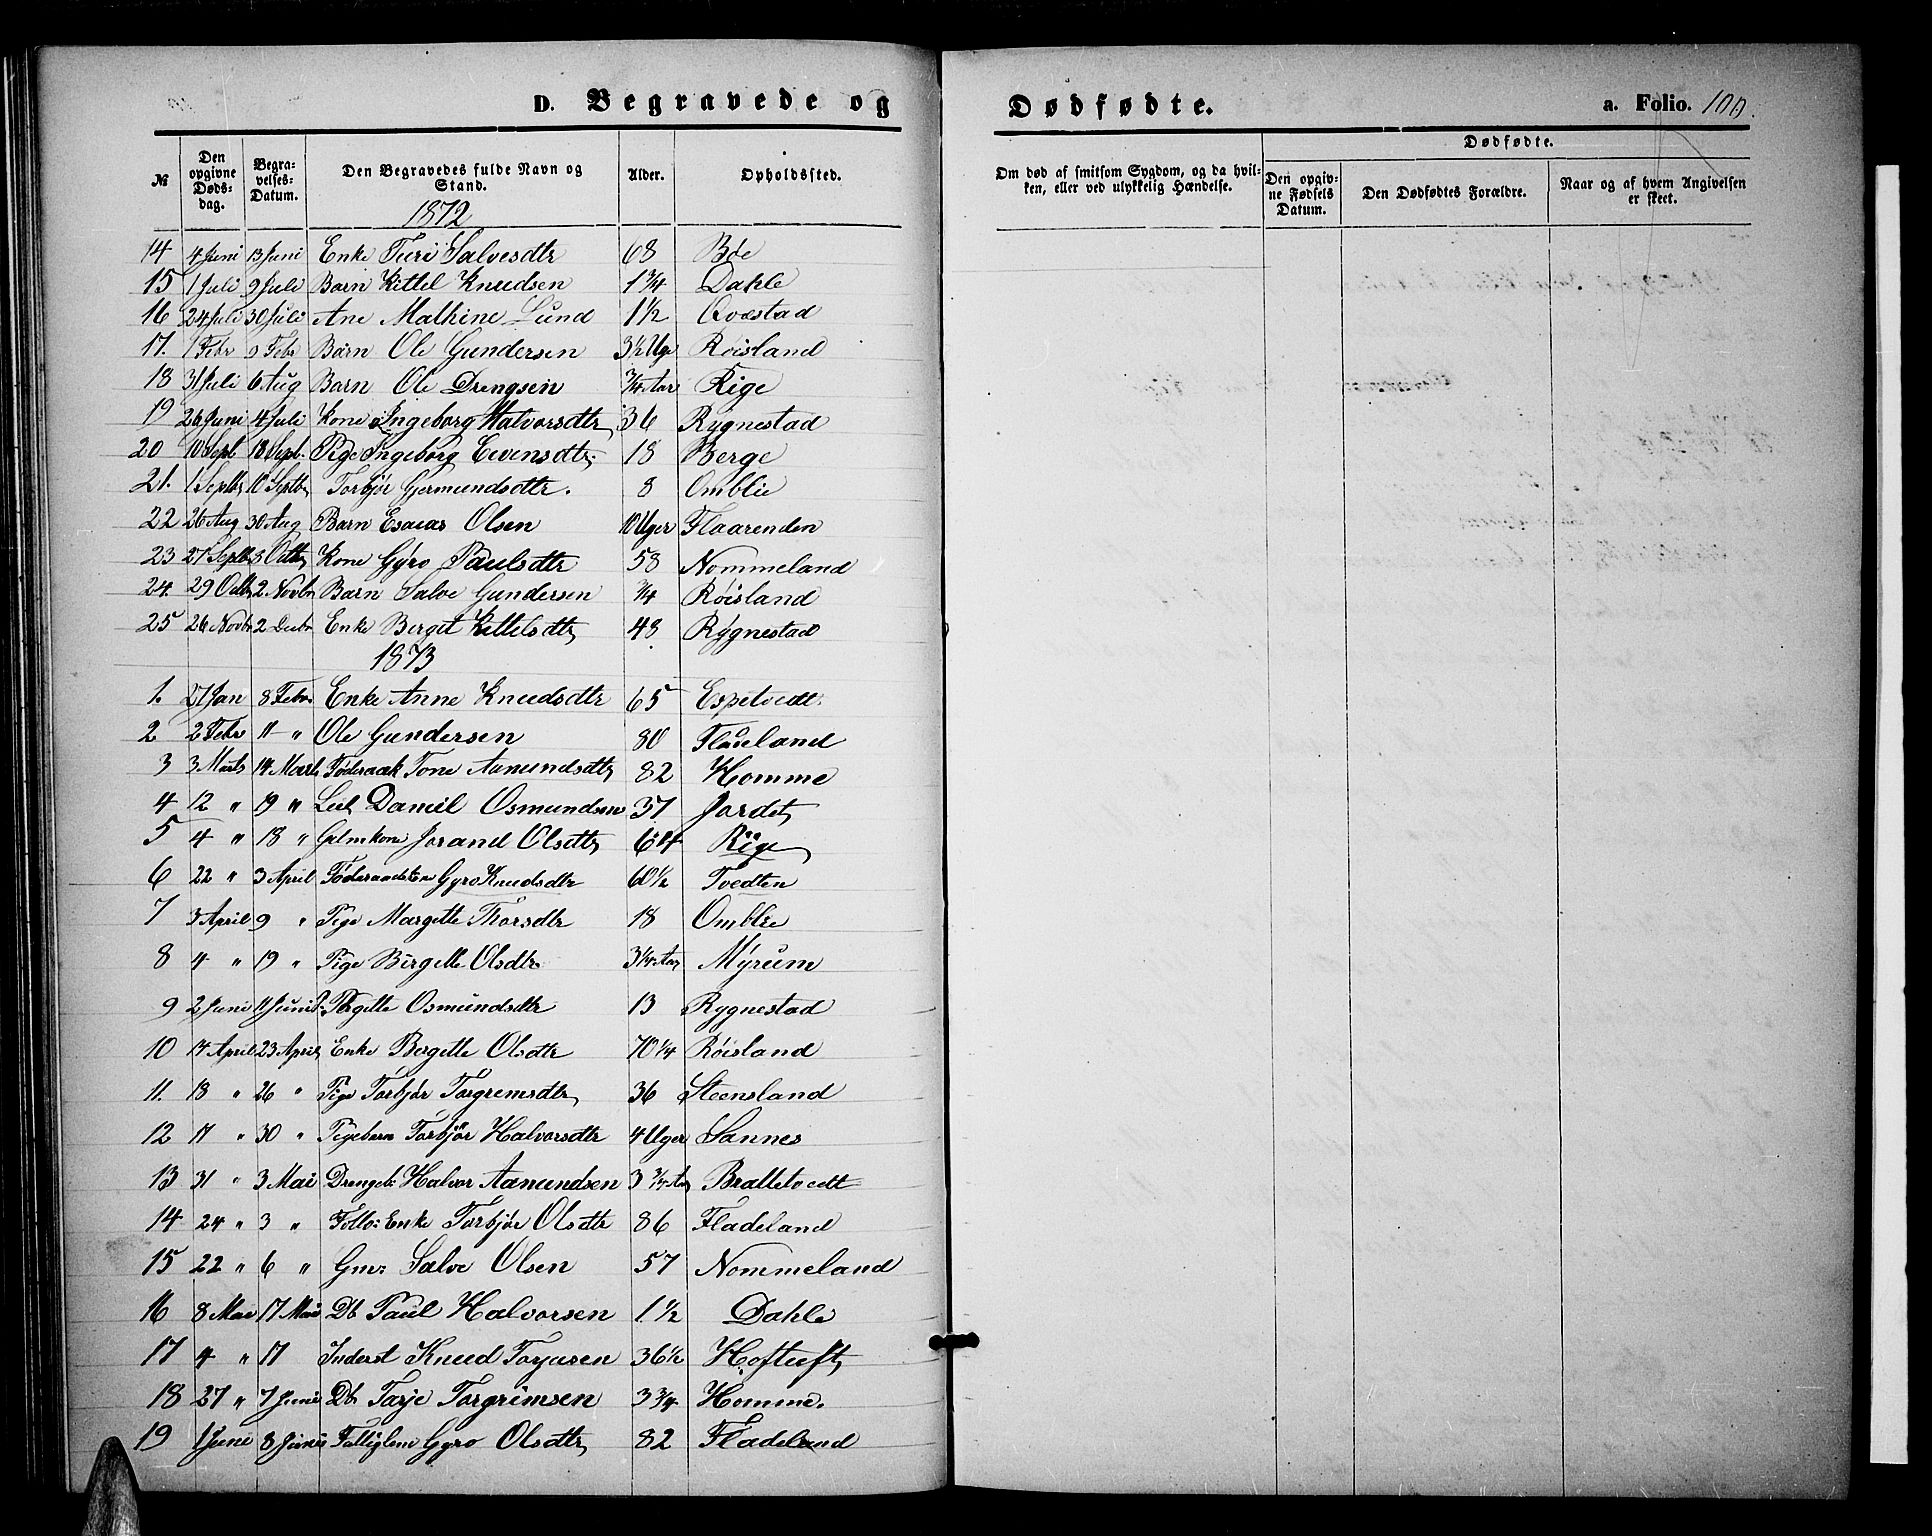 D. Begravede og Dødfødte. a. Folio. 100.
№ Den opgivne Døds-dag. Begra-velses-Datum. Den Begravedes fulde Navn og Stand. Alder. Opholdssted. Om død af smitsom Sygdom, og da hvil-ken, eller ved ulykkelig Hændelse. Dødfødte. Den opgiv-ne Fødsels Datum. Den Dødfødtes Forældre. Naar og af hvem Angivelsen er skeet.
1872
14 4 Juni 13 Juni Enke Turi Salvesdtr 68 Bøe
15 1 Juli 9 Juli Barn Kittel Knudsen 1 3/4 Dahle
16 24 Juli 30 Juli Ane Mathine Lund 1 1/2 Qvæstad
17. 1 Febr 9 Febr Barn Ole Gundersen 3 1/2 Uge Røisland
18 31 Juli 6 Aug Barn Ole Drengsen 3/4 Aar Rige
19 26 Juni 4 Juli Kone Ingeborg Halvorsdtr 36 Rygnestad
20 10 Sept 18 Sept. Pige Ingeborg Evensdtr. 18 Berge
21. 1 Septbr 10 Septbr Torbjør Gjermundsdtr. 8 Omblie
22 26 Aug 30 Aug Barn Esaias Olsen 10 Uger Flaarenden
23 27 Septbr 3 Octbr Kone Gyro Paulsdtr 58 Nommeland
24. 29 Octbr 2 Novbr Barn Salve Gundersen 3/4 Røisland
25 26 Novbr 2 Decbr Enke Berget Kittelsdtr 48 Rygnestad
1873
1. 27 Jan 8 Febr Enke Anne Knudsdtr 65 Espetvedt.
2 2 Febr 11 " Ole Gundersen 80 Fladeland
3 3 Marts 14 Marts Føderaak Tone Aamundsdtr 82 Homme
4 12 " 19 " Leil Daniel Osmundsen 37 Jordet
5 4 " 18 " Gelmkone Jorand Olsdtr 64 Rige
6 22 " 3 April Gyro Knudsdtr 60 1/2 Tvedten
7 3 April 9 " Pige Margette Thorsdtr 18 Omblie
8 4 " 19 " Pige Birgette Olsdtr 3 1/4 Aar Myrum
9 2 Juni 11 Juni Osmundsdtr 13 Rygnestad
10 17 April 23 April Enke Bergette Olsdtr 70 1/4 Røisland
11. 18 " 26 " Pige Torbjør Torgrimsdtr 36 Steensland
12 17 " 30 " Pigebarn Torbjør Halvorsdtr 4 Uger Sannes
13 31 " 3 Mai Drengeb: Halvor Aamundsen 3 3/4 Aar Brattetvedt
14 24 " 3 " Enke Torbjør Olsdtr 86 Fladeland
15 22 " 6 " Gm: Salve Olsen 57 Nommeland
16 8 Mai 17 Mai Db Paul Halvorsen 1 1/2 Dahle
17 4 " 17 Inderst Knud Torjusen 36 1/2 Hoftuft
18 27 " 7 Juni Db Tarje Torgrimsen 3 3/4 Homme.
19 1 Juni 8 Juni Fattiglem Gyro Olsdtr 82 Fladeland